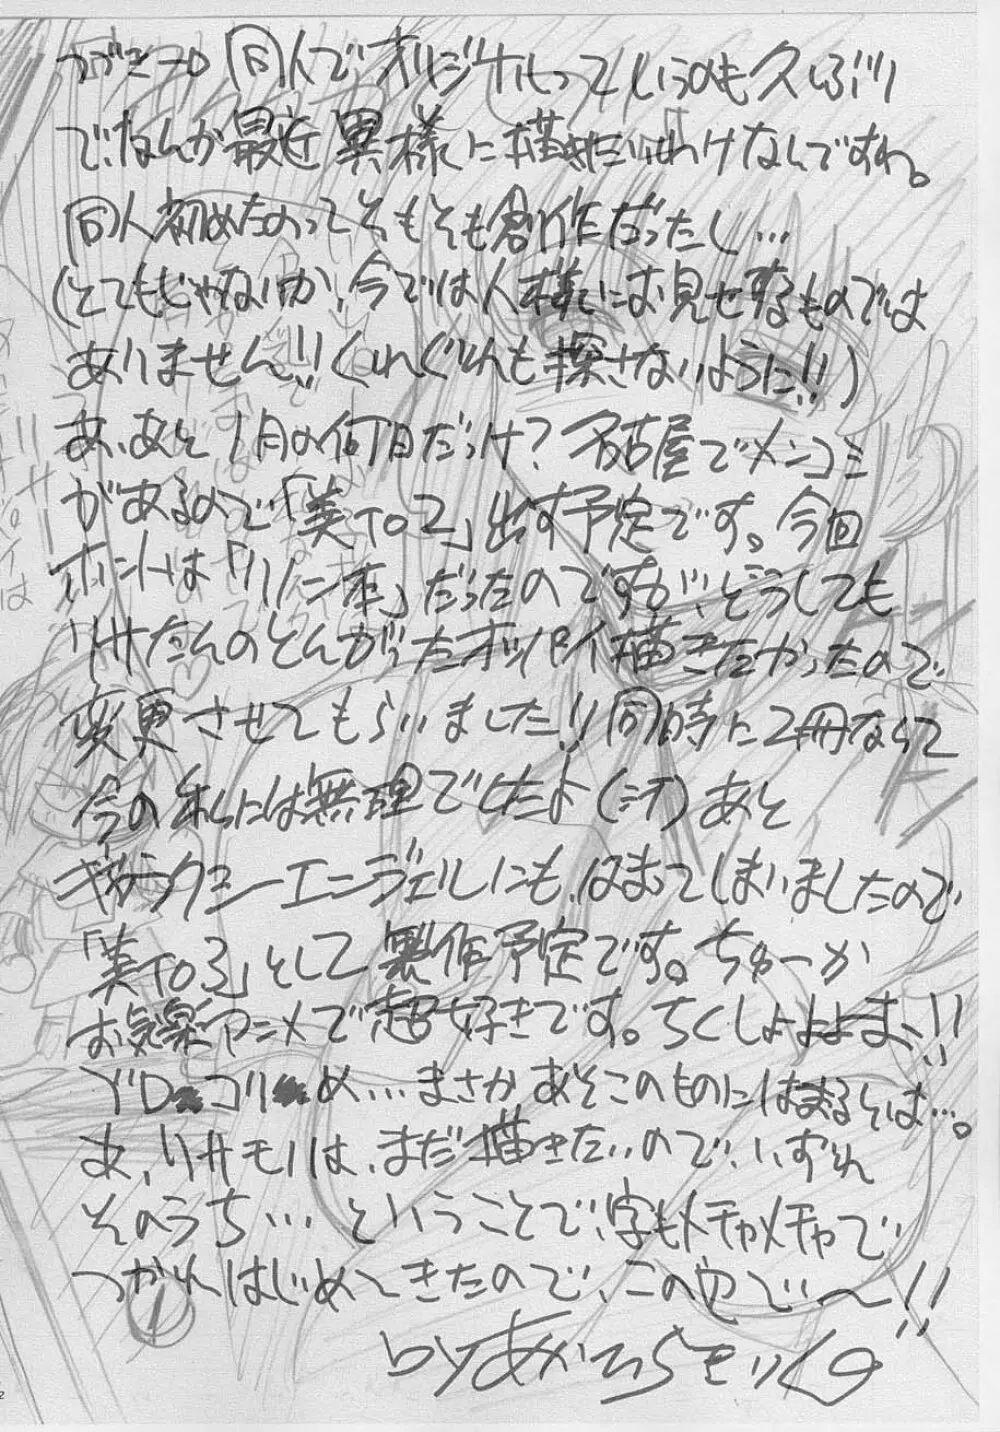 つづきーの 同人でオリジナルっていうのも久しぶり
で、なんか最近異様に描きたいわけなんですわ。
同人初めたのってそもそも創作だったし…
(とてもじゃないが、今では人様にお見せするものでは
ありません!!くれぐれも探さないように!!)
あ、あと1月の何日だっけ?名古屋でメンコミ
があるので「美TO2」出す予定です。今回
ホントは「リノン本」だったのですが、どうしても
リサたんのとんがったオッパイ描きたかったので
変更させてもらいました!!同時に2冊なんて
今の私には無理でしたよ(汗)あと
ギャラクシーエンジェルにも、はまってしまいましたので
「美TO3」として製作予定です。ちゅーか
お気楽アニメで超好きです。ちくしょーー!!
ブロコリめ…まさかあそこのものにはまるとは…。
あ、リサモノは、まだ描きたいので、いずれ
そのうち…ということで、字もメチャメチャで
つかれはじめてきたので、このへんで〜!!
by
い
は